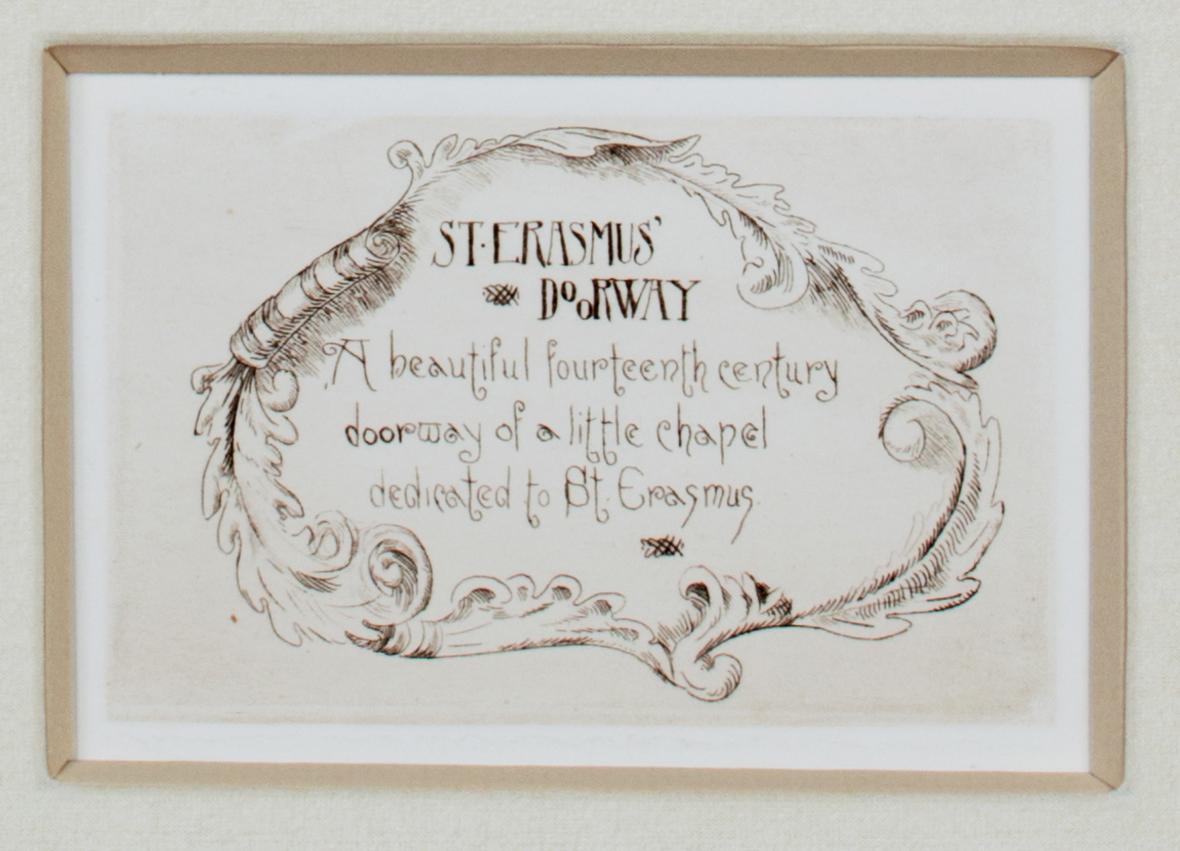 ST·ERASMUS'
DOORWAY
A beautiful fourteenth century
doorway of a little chapel
dedicated to St. Erasmus.